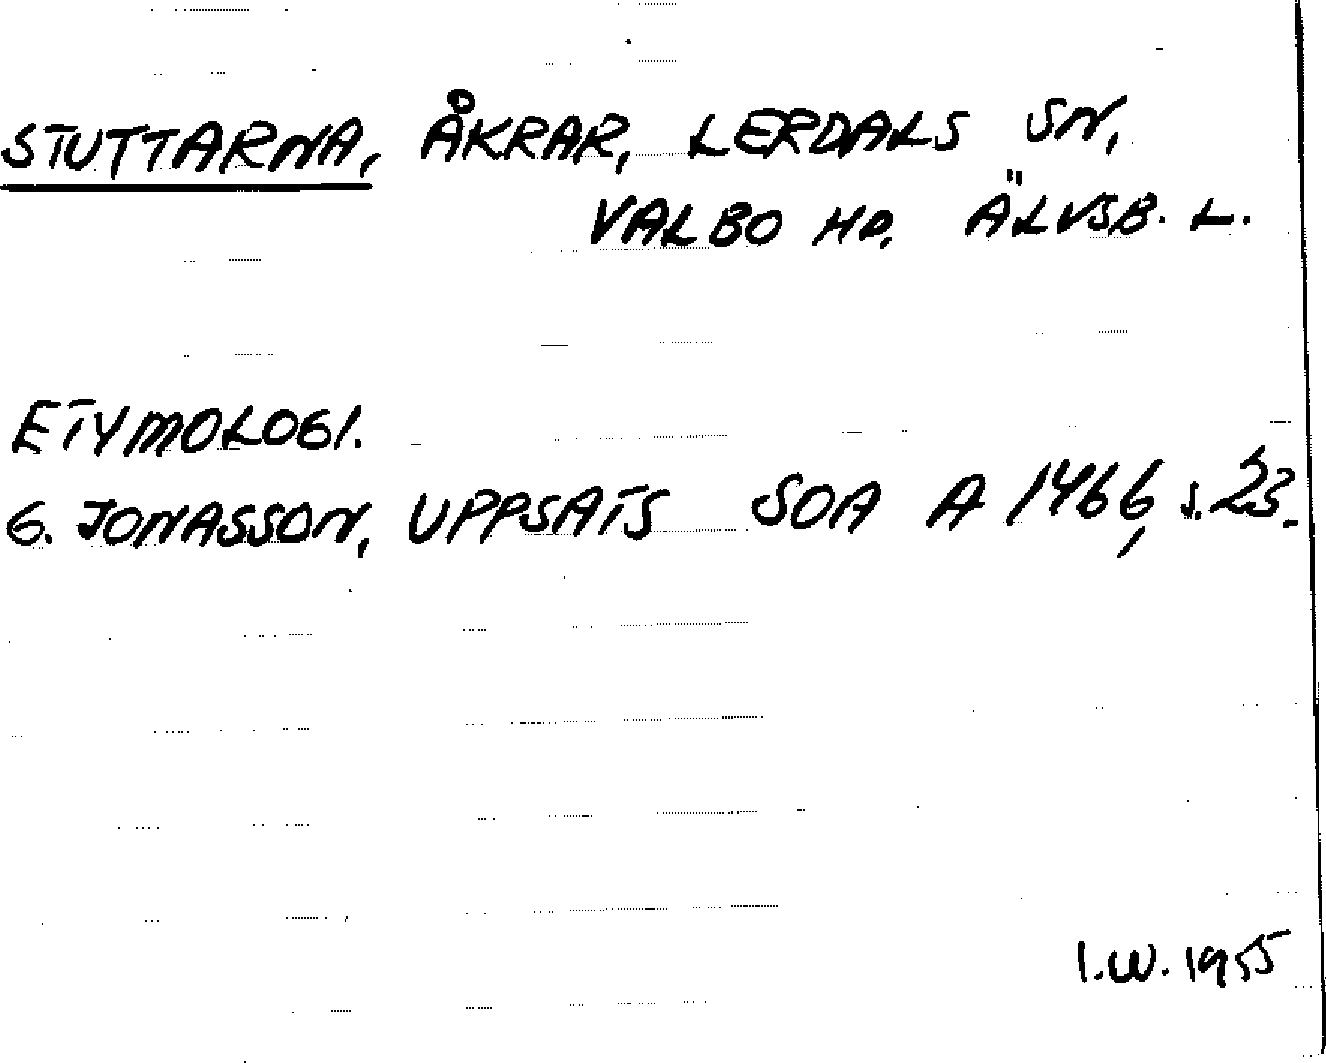 STUTTARNA, ÅKRAR, LERDALS SN,
VALBO HD. ÄLVSB. L.
ETYMOLOGI.
G. JONASSON, UPPSATS SOA A 1466, s. 23.
I.W. 1955